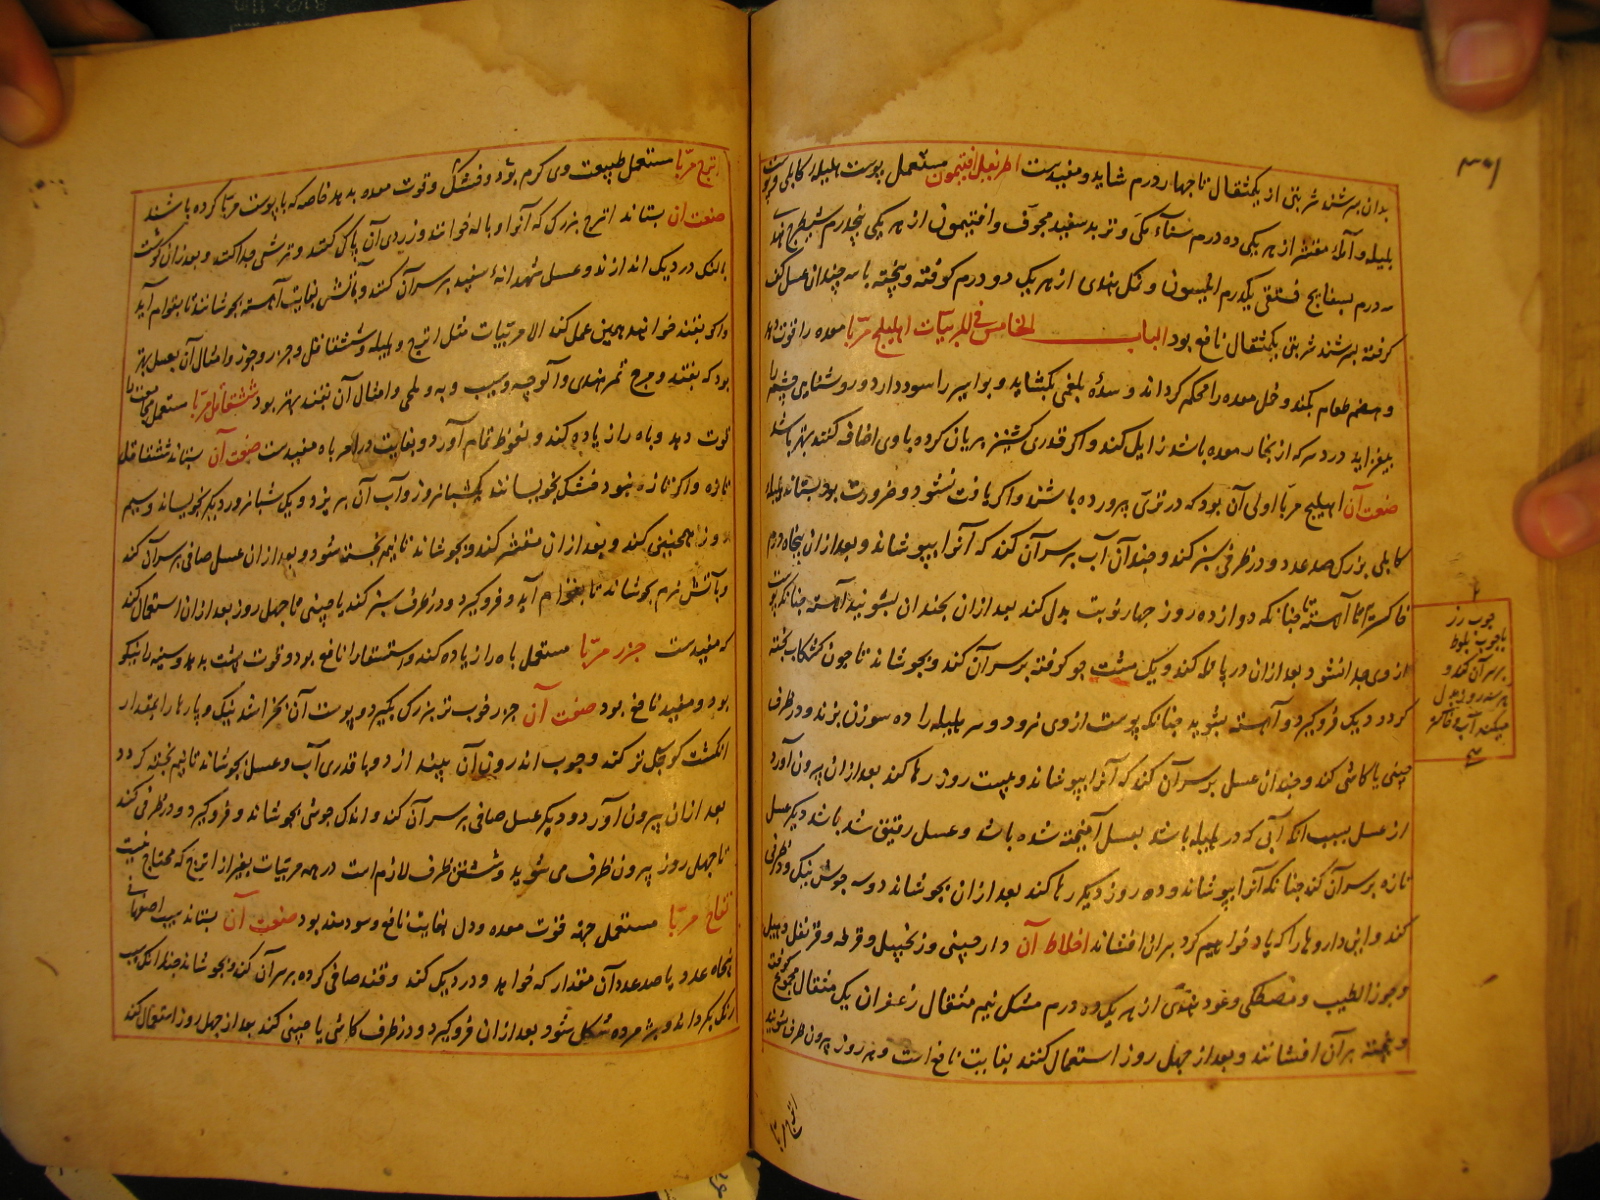 بدان بسرشند شربتی از یکمثقال تا چهار درم شاید و مفیدست اطریفل افتیمون مستعمل پوست هلیله کابلی و پوست
بلیله و آمله مقشر از هر یکی ده درم سناء مکی و تربد سفید مجوف و افتیمون از هر یکی پنجدرم شیطرج هندی
سه درم بسفایج فستقی یکدرم انیسون و نمک هندی از هر یک دو درم کوفته و بیخته با سه چندان عسل کف
گرفته بسرشند شربتی یکمثقال نافع بود الباب الخامس فی المربیات اهلیلج مربا معده را قوت دهد
و هضم طعام بکند و خمل معده را محکم کرداند و سده بلغمی بکشاید و بواسیر را سود دارد و روشنایی چشم را
بیفزاید درد سر که از بخار معده باشد زایل کند و اگر قدری کشنیز بریان کرده با وی اضافه کنند بهتر باشد
صنعت آن اهلیلج مربا اولی آن بود که در تری پرورده باشند و اگر یافت نشود و ضرورت بود بستاند هلیله
کابلی بزرک صد عدد و در ظرفی سبز کند و چندان آب بر سر آن کند که آنرا بپوشاند و بعد از ان پنجاه درم
خاکستر تا چنانکه دوازده روز چهار نوبت بدل کند بعد از ان بچندان بشوید آهسته چنانکه پوست
از وی جدا نشود بعد از ان در پاتله کند و یک مشت جو کوفته بر سر آن کند و بجوشاند تا چون کشکاب پخته
کردد دیک فروگیرد و آهسته بشوید چنانکه پوست از وی نرود و سر هلیله را ده سوزن بزند و در ظرف
چینی یا کاشی کند و چندان عسل بر سر آن کند که آنرا بپوشاند و بیست روز رها کند بعد از ان بیرون آورد
از عسل بسبب انکه آبی که در هلیله باشد بعسل آمیخته شده باشد و عسل رقیق شده باشد دیگر عسل
تازه بر سر آن کند چنانکه آنرا بپوشاند و ده روز دیگر رها کند بعد از ان بجوشاند دو سه جوش نیک و در ظرفی
کند و این داروها را که یاد خواهیم کرد بران افشاند اخلاط آن دارچینی و زنجبیل و قرفه و قرنفل و هیل
و جوز الطیب و مصطکی و عود هندی از هر یک ده درم مشک نیم مثقال زعفران یک مثقال مجموع کوفته
و بیخته بر آن افشانند و بعد از چهل روز استعمال کنند بغایت نافع است و هر روز بیرون ظرف بشویند
چوب رز
یا چوب بلوط
بر سر آن کند و
آب و خاکستر
اترج مربا
اترج مربا مستعمل طبیعت وی گرم بود و خشک و قوت معده بدهد خاصه که با پوست مربا کرده باشند
صنعت آن بستاند اترج بزرک که آنرا و باله خوانند و زردی آن پاک کنند و ترشی جدا کنند و بعد از ان گوشت
بالنگ در دیک اندازند و عسل شهدانه سفید بر سر آن کنند و بآتش بغایت آهسته بجوشانند تا بقوام آید
و اگر بقند خواهند همین عمل کند الا مربیات مثل اترج و هلیله و شقاقل و جزر و جوز و امثال آن بعسل بهتر
بود که بقند و تمر هندی و آلوچه و سیب و به و امثال آن بقند بهتر بود شقاقل مربا مستعمل
قوت دهد و باه را زیاده کند و نعوظ تمام آورد و بغایت در امر باه مفیدست صنعت آن بستاند شقاقل
تازه و اگر تازه نبود خشک بخویساند یکشبانروز و آب آن بریزد و یک شبانروز دیگر بخویساند و سیم
روز همچنین کند و بعد از ان مقشر کند و بجوشاند تا نیم پخته شود و بعد از ان عسل صافی بر سر آن کند
و بآتش نرم بجوشاند تا بقوام آید و فروگیرد و در ظرف سبز کند یا چینی تا چهل روز بعد از ان استعمال کند
که مفیدست جزر مربا مستعمل باه را زیاده کند و استسقا را نافع بود و قوت پشت بدهد و سینه را نیکو
بود و مفید نافع بود صنعت آن جزر خوب تر بزرک بگیرد و پوست آن بخراشد نیک و پارها بمقدار
انگشت کوچک تر کند و چوب اندرون آن بیندازد و با قدری آب و عسل بجوشاند تا نیم پخته گردد
بعد از ان بیرون آورد و دیگر عسل صافی بر سر آن کند و اندک جوشی بجوشاند و فروگیرد و در ظرفی کند
تا چهل روز بیرون ظرف می شوید و شستن ظرف لازم است در همه مربیات بغیر از اترج که محتاج نیست
تفاح مربا مستعمل جهة قوت معده و دل بغایت نافع و سودمند بود صنعت آن بستاند سیب اصفهانی
پنجاه عدد یا صد عدد آن مقدار که خواهد و در دیک کند و قند صافی کرده بر سر آن کند و بجوشاند چندانکه سیب
رنگ بگرداند و پژمرده شکل شود بعد از ان فروگیرد و در ظرف کاشی یا چینی کند بعد از چهل روز استعمال کند